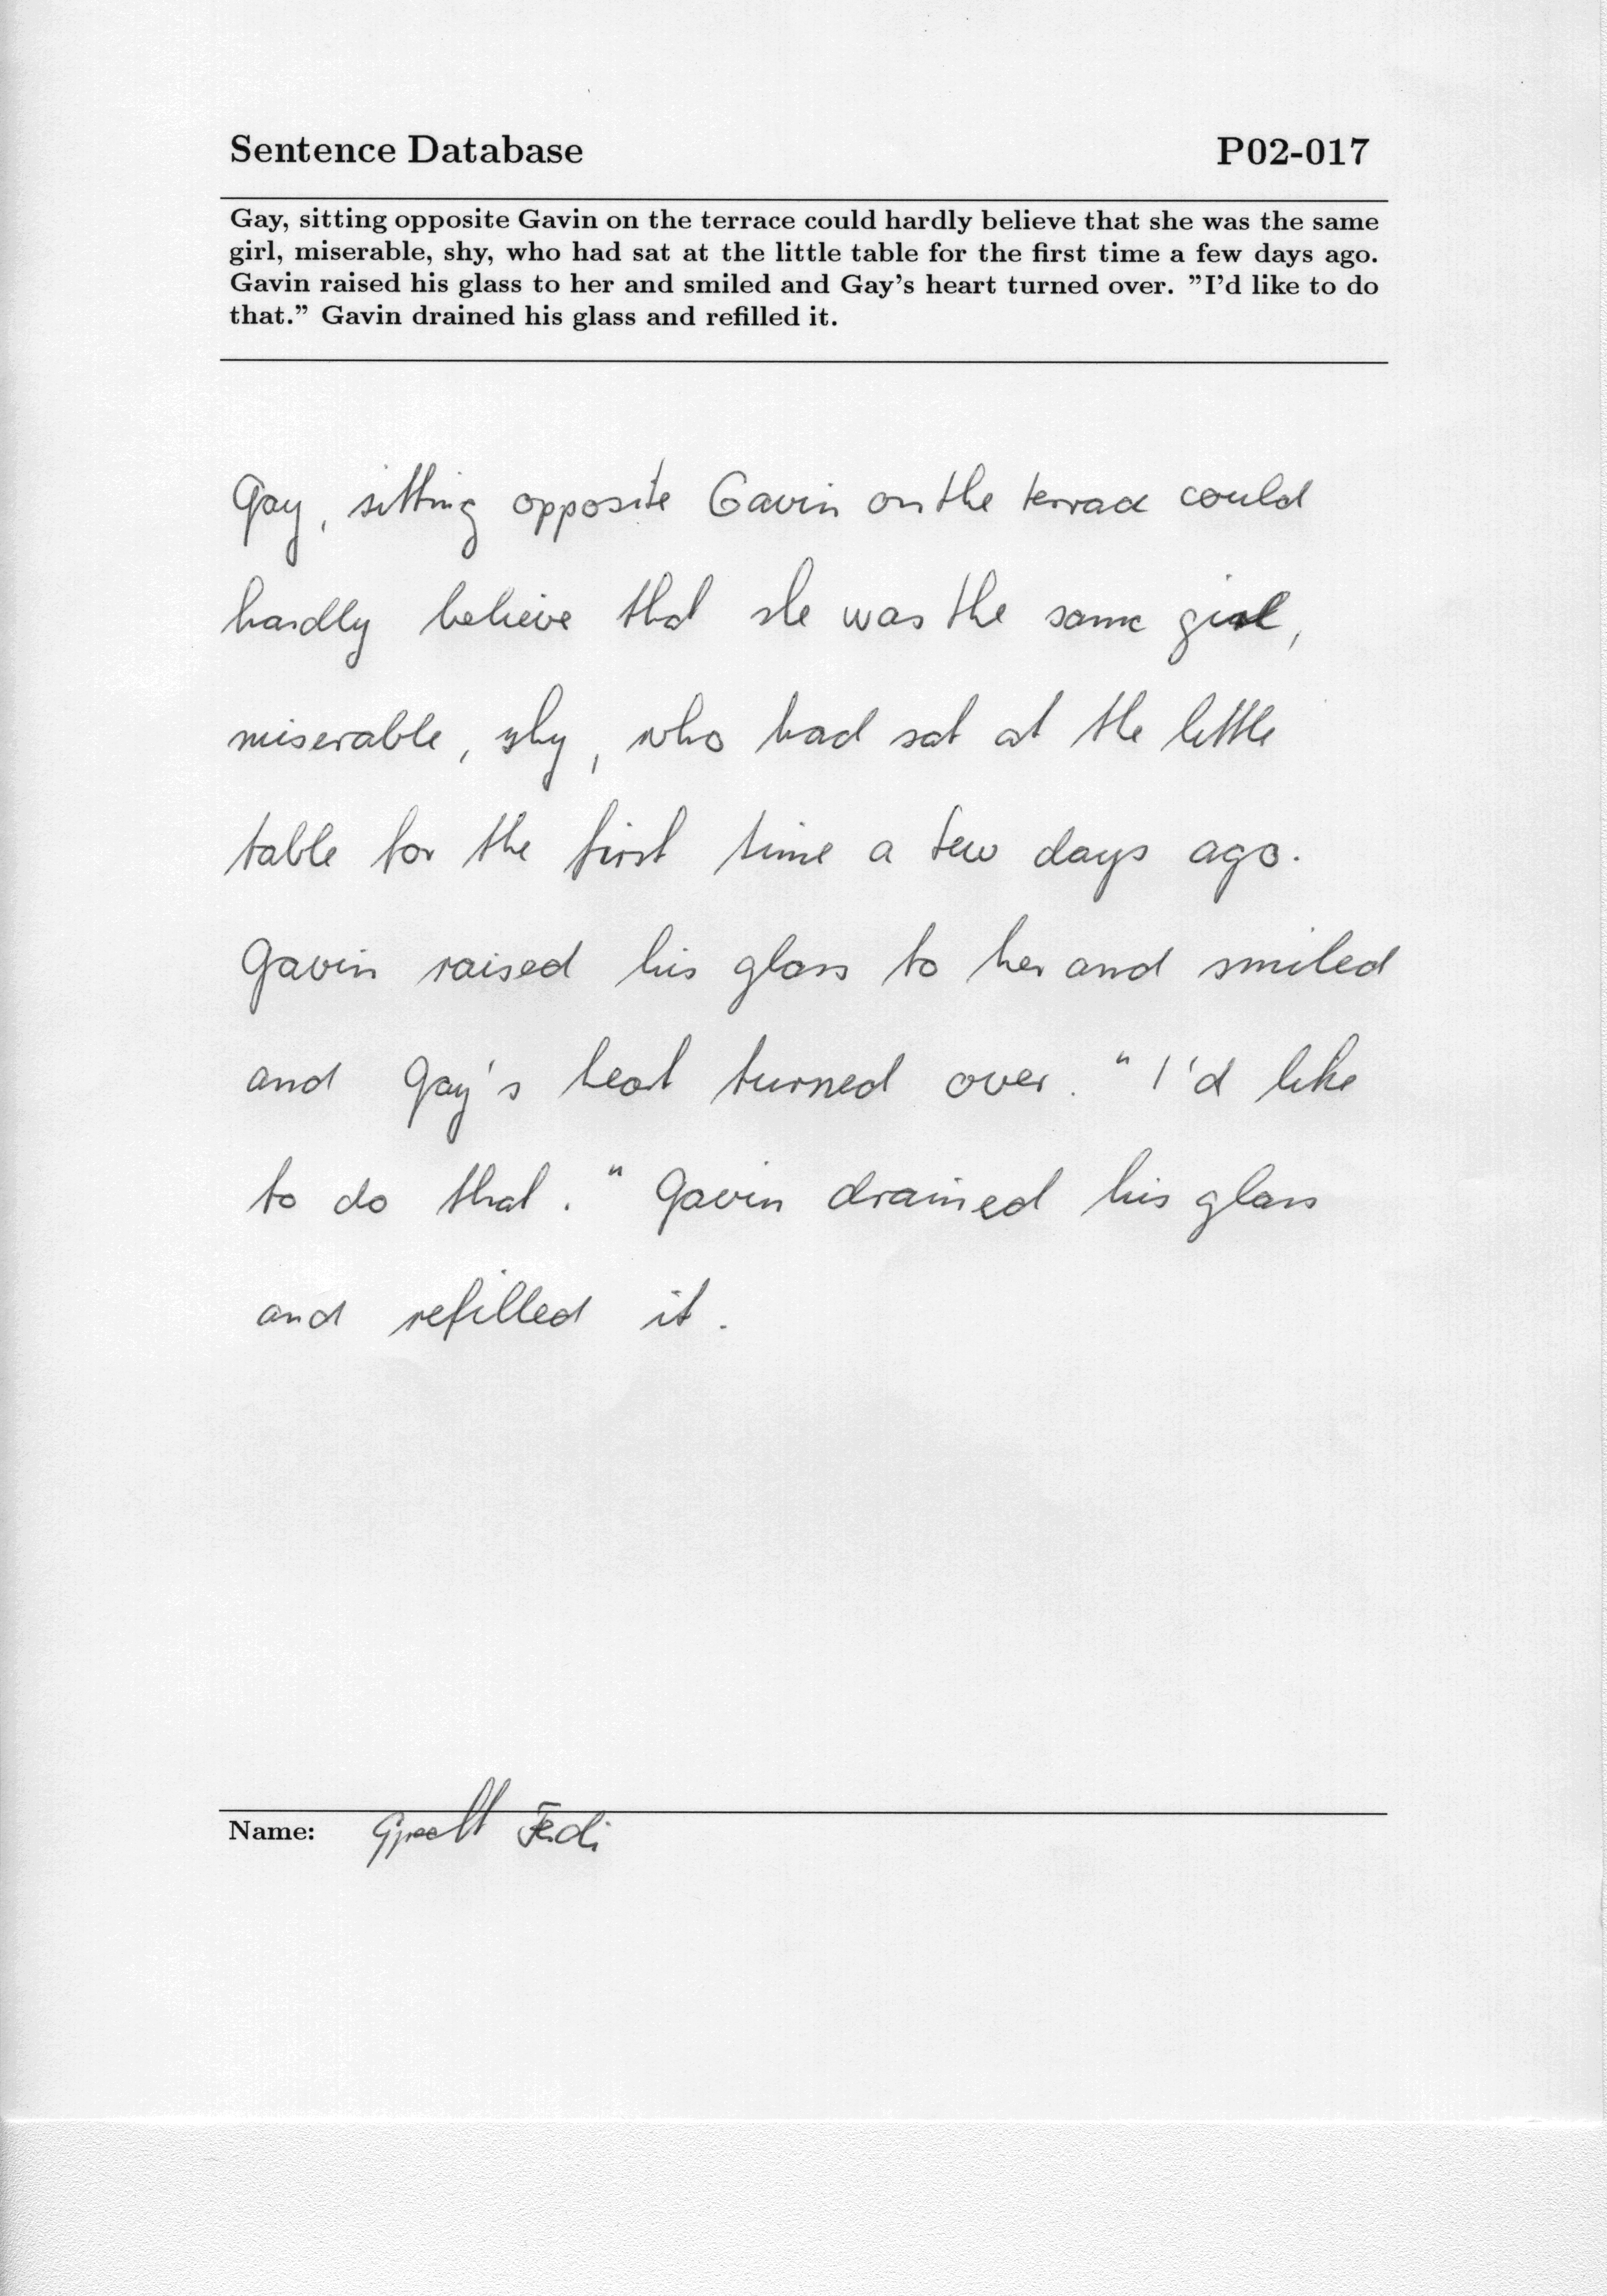 Sentence Database P02-017
Gay, sitting opposite Gavin on the terrace could hardly believe that she was the same
girl, miserable, shy, who had sat at the little table for the first time a few days ago.
Gavin raised his glass to her and smiled and Gay's heart turned over. "I'd like to do
that." Gavin drained his glass and refilled it.
Gay, sitting opposite Gavin on the terrace could
hardly believe that she was the same girl,
miserable, shy, who had sat at the little
table for the first time a few days ago.
Gavin raised his glass to her and smiled
and Gay's heart turned over. "I'd like
to do that." Gavin drained his glass
and refilled it.
Name: